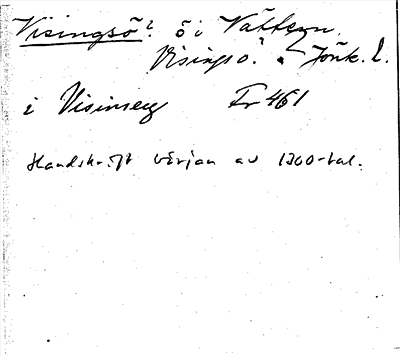 Visingsö? ö i Vättern.
Visingsö. Jönk. l.
i Visinsey Fr 461
Handskrift början av 1300-tal.